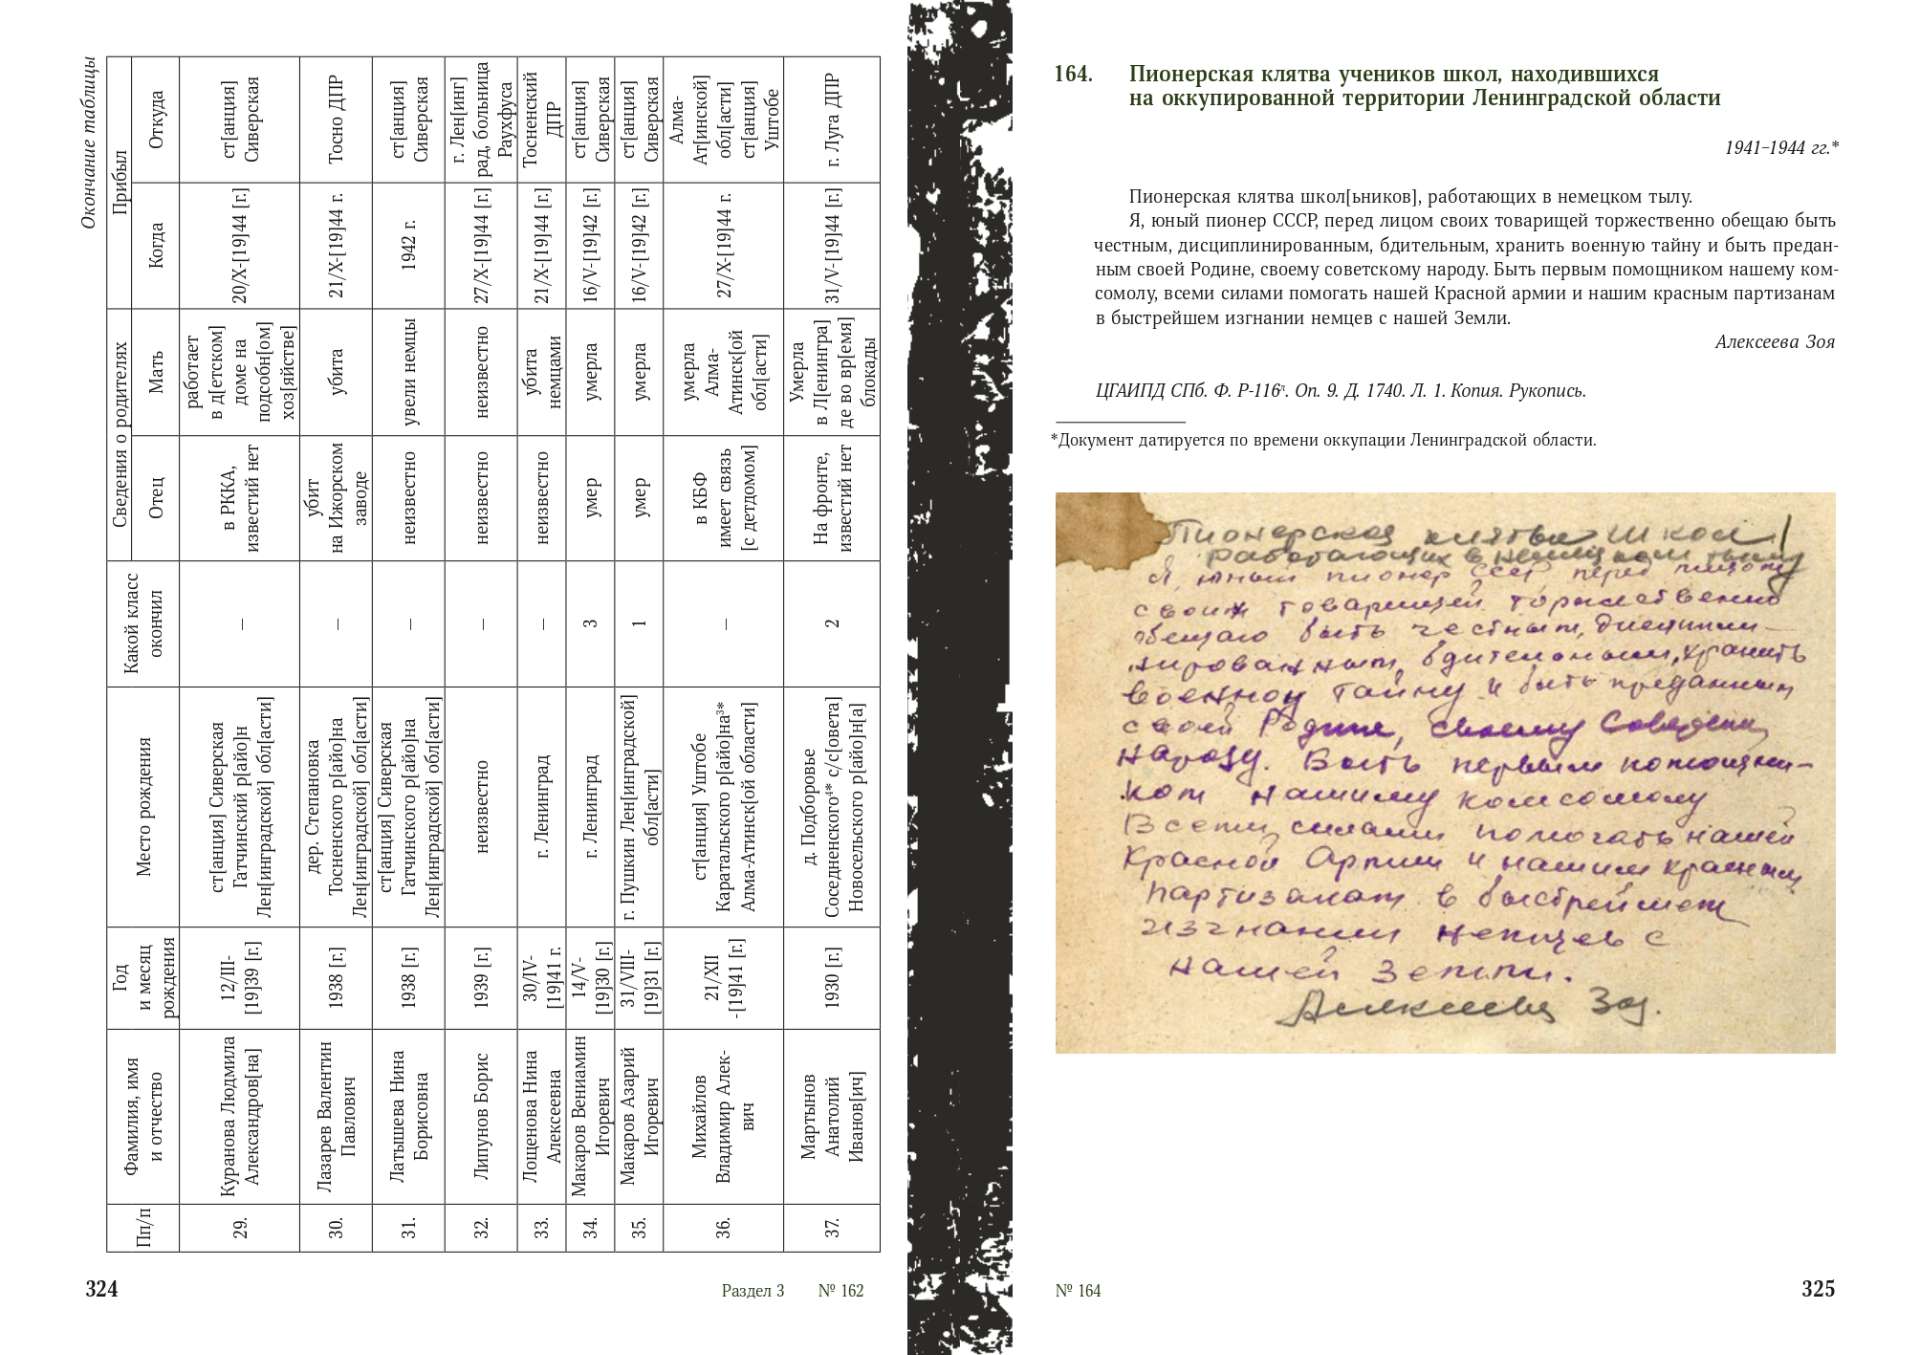 Окончание таблицы
Пп/п | Фамилия, имя и отчество | Год и месяц рождения | Место рождения | Какой класс окончил | Сведения о родителях: Отец | Мать | Прибыл: Когда | Откуда
29. | Куранова Людмила Александров[на] | 12/III-[19]39 [г.] | ст[анция] Сиверская Гатчинский р[айо]н Лен[инградской] обл[асти] | – | в РККА, известий нет | работает в д[етском] доме на подсобн[ом] хоз[яйстве] | 20/X-[19]44 [г.] | ст[анция] Сиверская
30. | Лазарев Валентин Павлович | 1938 [г.] | дер. Степановка Тосненского р[айо]на Лен[инградской] обл[асти] | – | убит на Ижорском заводе | убита | 21/X-[19]44 г. | Тосно ДПР
31. | Латышева Нина Борисовна | 1938 [г.] | ст[анция] Сиверская Гатчинского р[айо]на Лен[инградской] обл[асти] | – | неизвестно | увели немцы | 1942 г. | ст[анция] Сиверская
32. | Липунов Борис | 1939 [г.] | неизвестно | – | неизвестно | неизвестно | 27/X-[19]44 [г.] | г. Лен[инг]рад, больница Раухфуса
33. | Лощенова Нина Алексеевна | 30/IV-[19]41 г. | г. Ленинград | – | неизвестно | убита немцами | 21/X-[19]44 [г.] | Тосненский ДПР
34. | Макаров Вениамин Игоревич | 14/V-[19]30 [г.] | г. Ленинград | 3 | умер | умерла | 16/V-[19]42 [г.] | ст[анция] Сиверская
35. | Макаров Азарий Игоревич | 31/VIII-[19]31 [г.] | г. Пушкин Лен[инградской] обл[асти] | 1 | умер | умерла | 16/V-[19]42 [г.] | ст[анция] Сиверская
36. | Михайлов Владимир Алек-вич | 21/XII -[19]41 [г.] | ст[анция] Уштобе Каратальского р[айо]на³* Алма-Атинск[ой области] | – | в КБФ имеет связь [с детдомом] | умерла Алма-Атинск[ой обл[асти] | 27/X-[19]44 г. | Алма-Ат[инской] обл[асти] ст[анция] Уштобе
37. | Мартынов Анатолий Иванов[ич] | 1930 [г.] | д. Подборовье Соседненского⁴* с/с[овета] Новосельского р[айо]н[а] | 2 | На фронте, известий нет | Умерла в Л[енингра]де во вр[емя] блокады | 31/V-[19]44 [г.] | г. Луга ДПР
324
Раздел 3 № 162
164. Пионерская клятва учеников школ, находившихся
на оккупированной территории Ленинградской области
1941–1944 гг.*
Пионерская клятва школ[ьников], работающих в немецком тылу.
Я, юный пионер СССР, перед лицом своих товарищей торжественно обещаю быть
честным, дисциплинированным, бдительным, хранить военную тайну и быть предан-
ным своей Родине, своему советскому народу. Быть первым помощником нашему ком-
сомолу, всеми силами помогать нашей Красной армии и нашим красным партизанам
в быстрейшем изгнании немцев с нашей Земли.
Алексеева Зоя
ЦГАИПД СПб. Ф. Р-116л. Оп. 9. Д. 1740. Л. 1. Копия. Рукопись.
*Документ датируется по времени оккупации Ленинградской области.
Пионерская клятва школ
работающих в немецком тылу
Я, юный пионер СССР, перед лицом
своих товарищей торжественно
обещаю быть честным, дисципли-
нированным, бдительным, хранить
военную тайну и быть преданным
своей Родине, своему Советскому
народу. Быть первым помощни-
ком нашему комсомолу
Всеми силами помогать нашей
Красной Армии и нашим красным
партизанам в быстрейшем
изгнании немцев с
нашей Земли.
Алексеева Зоя.
№ 164
325